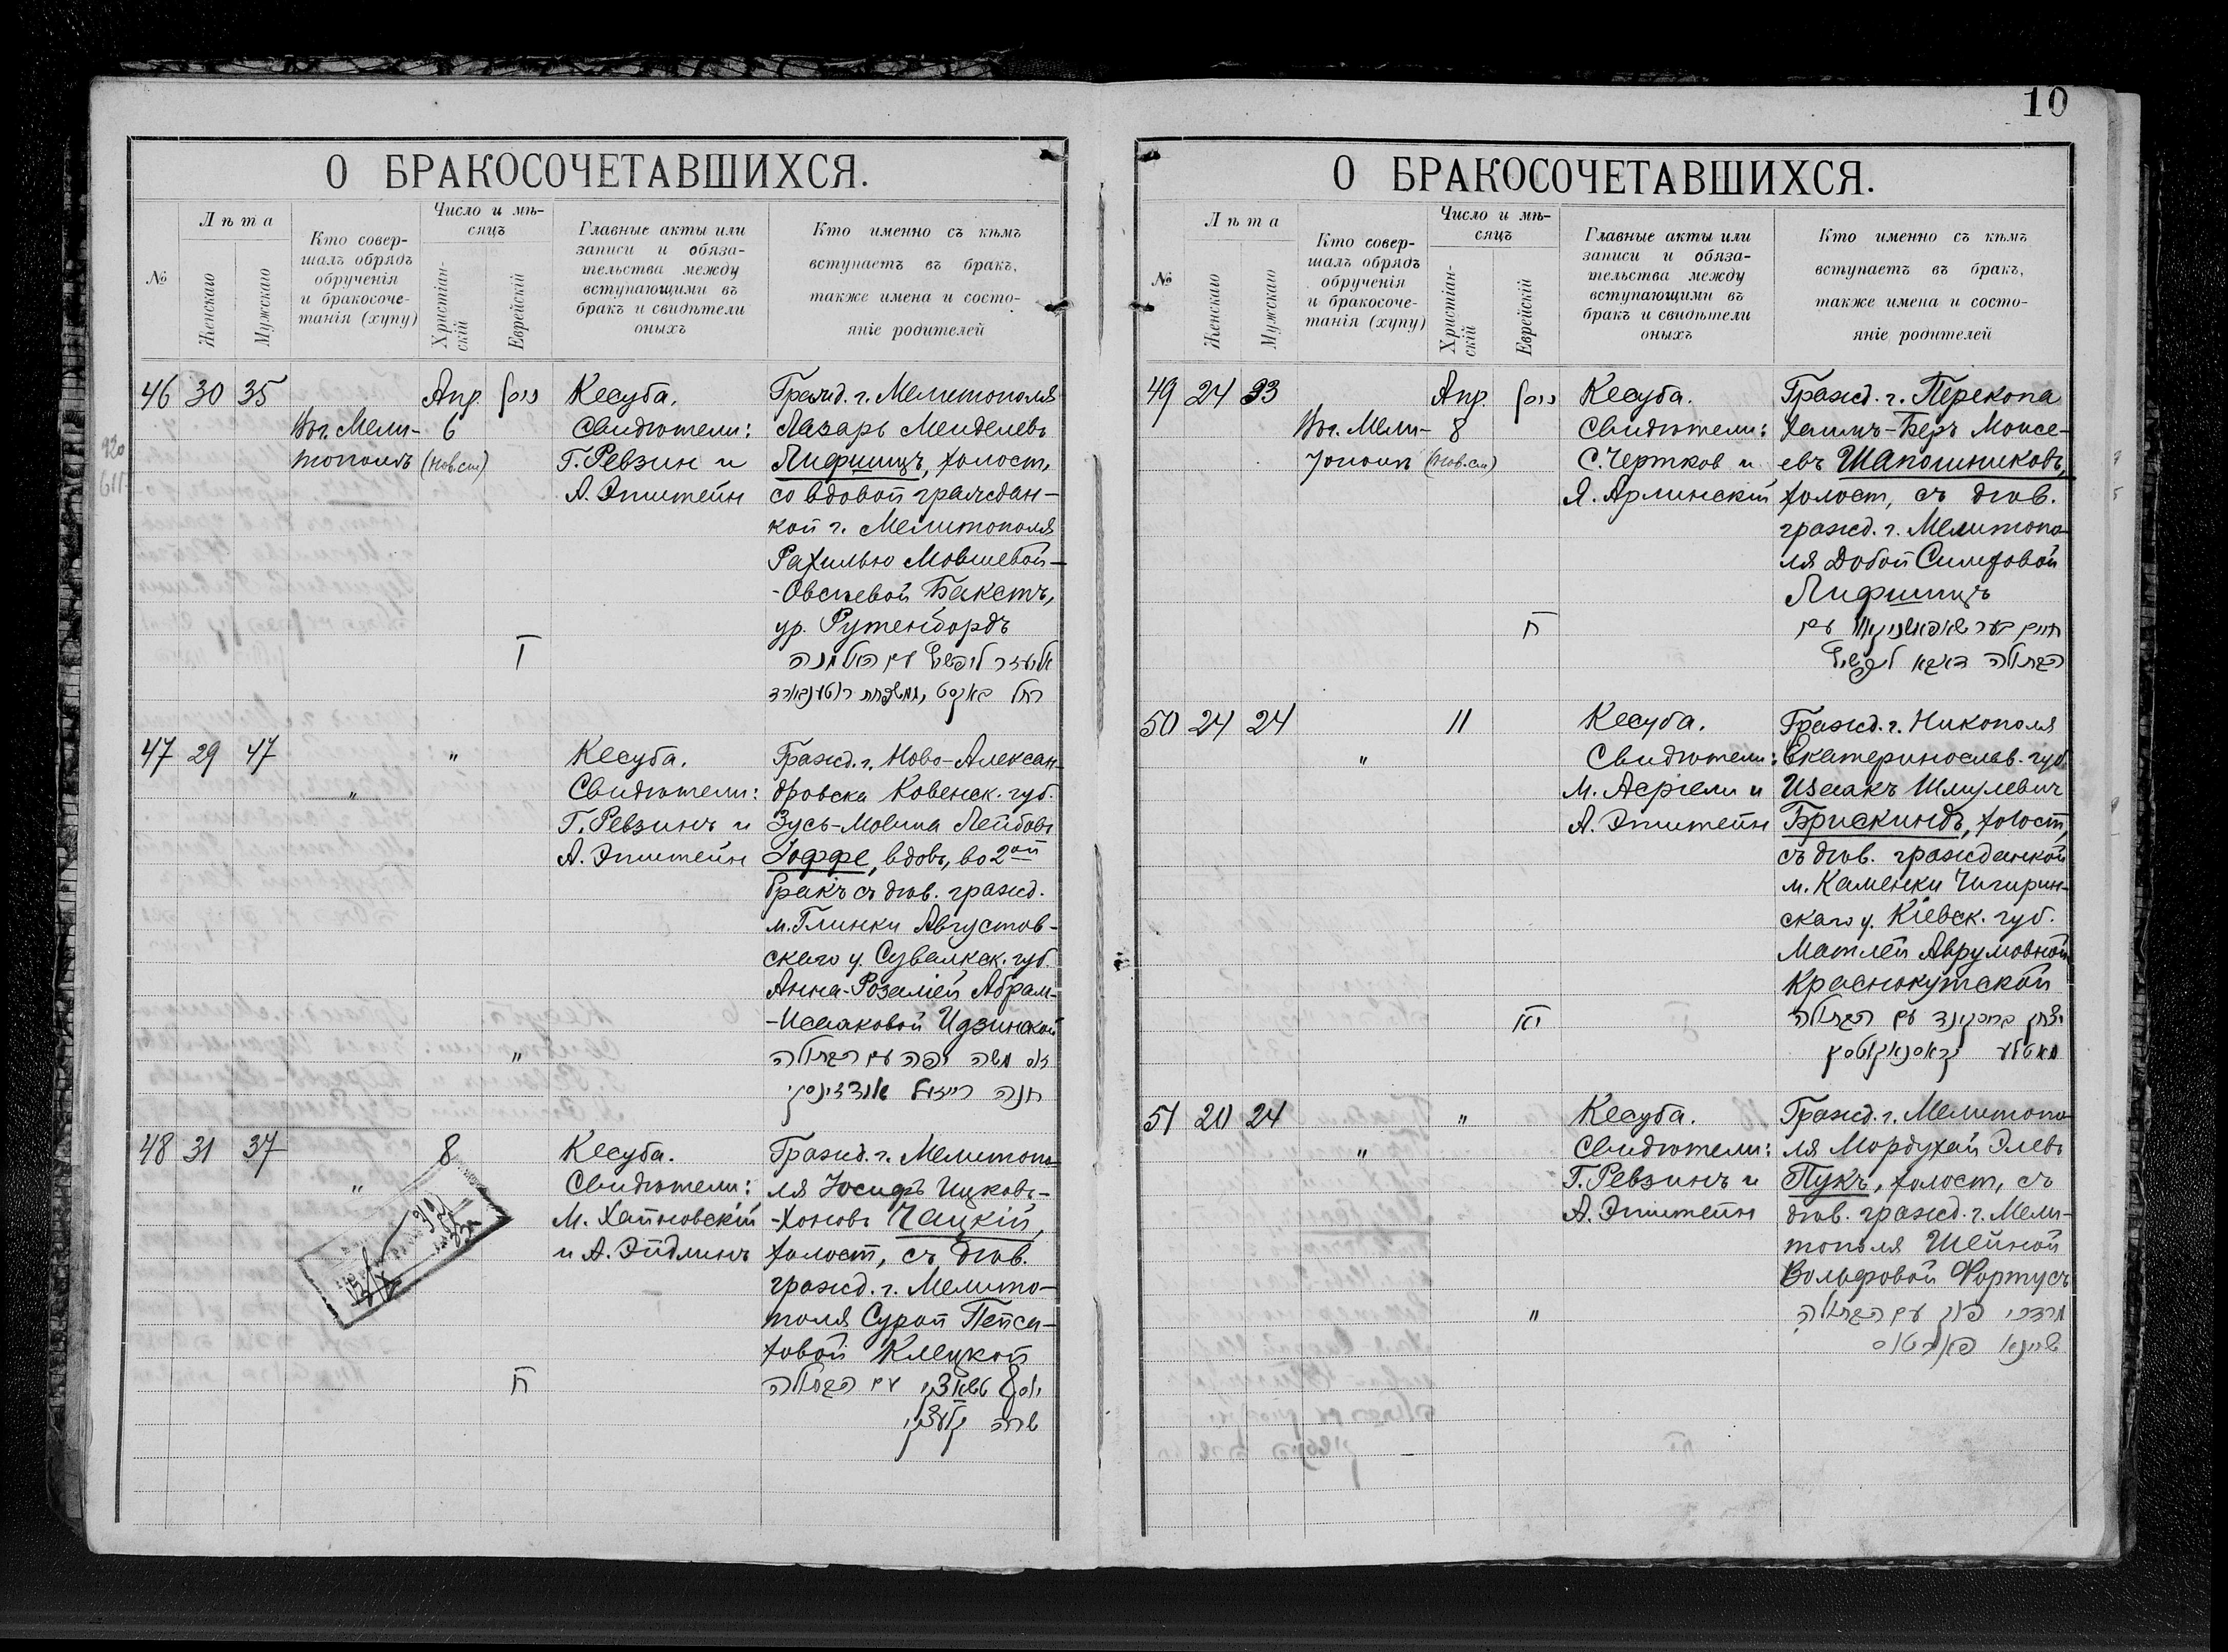 10
О БРАКОСОЧЕТАВШИХСЯ.
№
Лѣта
Женскаго
Мужскаго
Кто совер-
шалъ обрядъ
обрученія
и бракосоче-
танія (хупу)
Число и мѣ-
сяцъ
Христіан-
скій
Еврейскій
Главные акты или
записи и обяза-
тельства между
вступающими въ
бракъ и свидѣтели
оныхъ
Кто именно съ кѣмъ
вступаетъ въ бракъ,
также имена и состо-
яніе родителей
46 30 35
Въ г. Мели-
тополѣ
Апр.
6
(нов.ст)
ניסן
Кесуба.
Свидѣтели:
Г. Ревзин и
А. Эпштейн
Гражд. г. Мелитополя
Лазарь Менделевъ
Лифшицъ, холост,
со вдовой граждан-
кой г. Мелитополя
Рахилью Мовшевой-
-Овсѣевой Бакстъ,
ур. Рутенбордъ
ד
אליעזר ליפשיץ עם האלמנה
רחל באקסט
47 29 47
"
"
Кесуба.
Свидѣтели:
Г. Ревзинъ и
А. Эпштейн
Гражд. г. Ново-Алексан-
дровска Ковенск. губ.
Зусь-Мовша Лейбовъ
Іоффе, вдов., во 2ой
бракъ съ дѣв. гражд.
м. Глинки Августов-
скаго у. Сувалкск. губ.
Анна-Розаліей Абрам-
-Исааковой Идзинской
"
משה יפה עם הבתולה
חנה רייזל
48 31 37
"
8
Кесуба.
Свидѣтели:
М. Хайновскій
и А. Эйдлинъ
Гражд. г. Мелитопо-
ля Іосифъ Ицковъ-
-Хоновъ Чацкій,
холост, съ дѣв.
гражд. г. Мелито-
поля Сурой Пейса-
ховой Клецкой
ח
יוסף טשאצקי עם הבתולה
שרה קלעצקי
О БРАКОСОЧЕТАВШИХСЯ.
№
Лѣта
Женскаго
Мужскаго
Кто совер-
шалъ обрядъ
обрученія
и бракосоче-
танія (хупу)
Число и мѣ-
сяцъ
Христіан-
скій
Еврейскій
Главные акты или
записи и обяза-
тельства между
вступающими въ
бракъ и свидѣтели
оныхъ
Кто именно съ кѣмъ
вступаетъ въ бракъ,
также имена и состо-
яніе родителей
49 24 33
Въ г. Мели-
тополѣ
Апр.
8
(нов.ст)
ניסן
Кесуба.
Свидѣтели:
С. Чертков и
Я. Арлинскій
Гражд. г. Перекопа
Хаимъ-Беръ Моисе-
евъ Шапошниковъ,
холост, съ дѣв.
гражд. г. Мелитопо-
ля Добой Симховой
Лифшицъ
ח
חיים בער שאפאשניקאוו עם
הבתולה דאבא ליפשיץ
50 24 24
"
11
Кесуба.
Свидѣтели:
М. Асріели и
А. Эпштейн
Гражд. г. Никополя
Екатеринослав. губ.
Исаакъ Шмулевич
Брискиндъ, холост,
съ дѣв. гражданкой
м. Каменки Чигирин-
скаго у. Кіевск. губ.
Матлей Аврумовной
Краснокутской
יא
יצחק בריסקינד עם הבתולה
מאטלע קראסנאקוטסקי
51 20 24
"
"
Кесуба.
Свидѣтели:
Г. Ревзинъ и
А. Эпштейн
Гражд. г. Мелитопо-
ля Мордухай Элевъ
Пукъ, холост, съ
дѣв. гражд. г. Мели-
тополя Шейной
Вольфовой Фортусъ
"
מרדכי פוק עם הבתולה
שיינא פארטוס